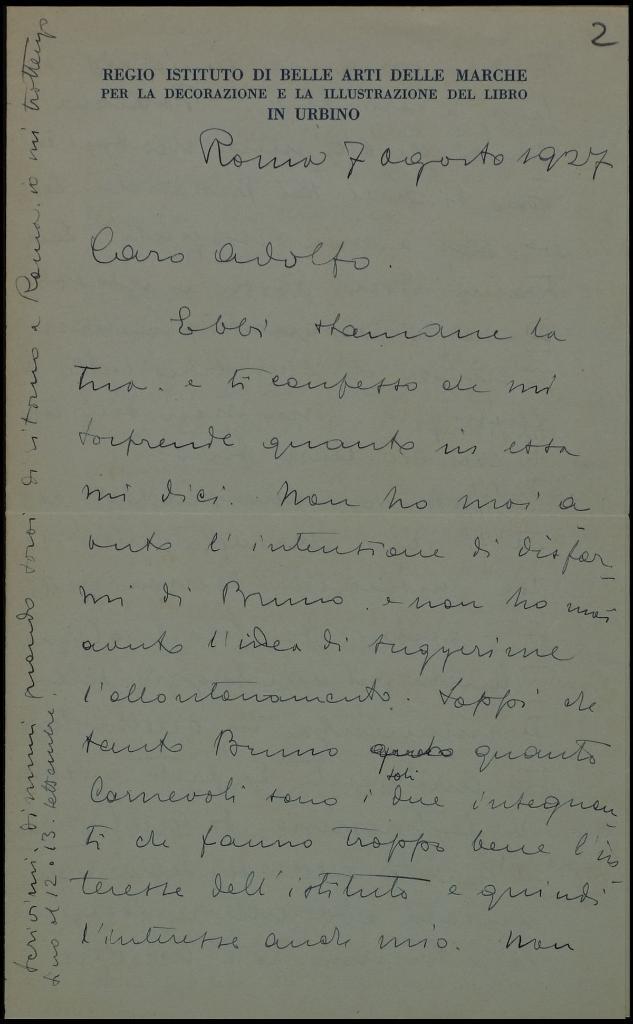 2
REGIO ISTITUTO DI BELLE ARTI DELLE MARCHE
PER LA DECORAZIONE E LA ILLUSTRAZIONE DEL LIBRO
IN URBINO
Roma 7 agosto 1927
Caro Adolfo.
Ebbi stamane la
tua. e ti confesso che mi
sorprende quanto in essa
mi dici. Non ho mai a
vuto l'intenzione di disfar-
mi di Bruno. e non ho mai
avuto l'idea di suggerirne
l'allontanamento. Sappi che
tanto Bruno quanto
Carnevali sono i soli due insegnan-
ti che fanno troppo bene l'in
teresse dell'istituto e quindi
l'interesse anche mio. Non
Scrivimi, dimmi quando sarai di ritorno a Roma. io mi trattengo
sino al 12 o 13. settembre.